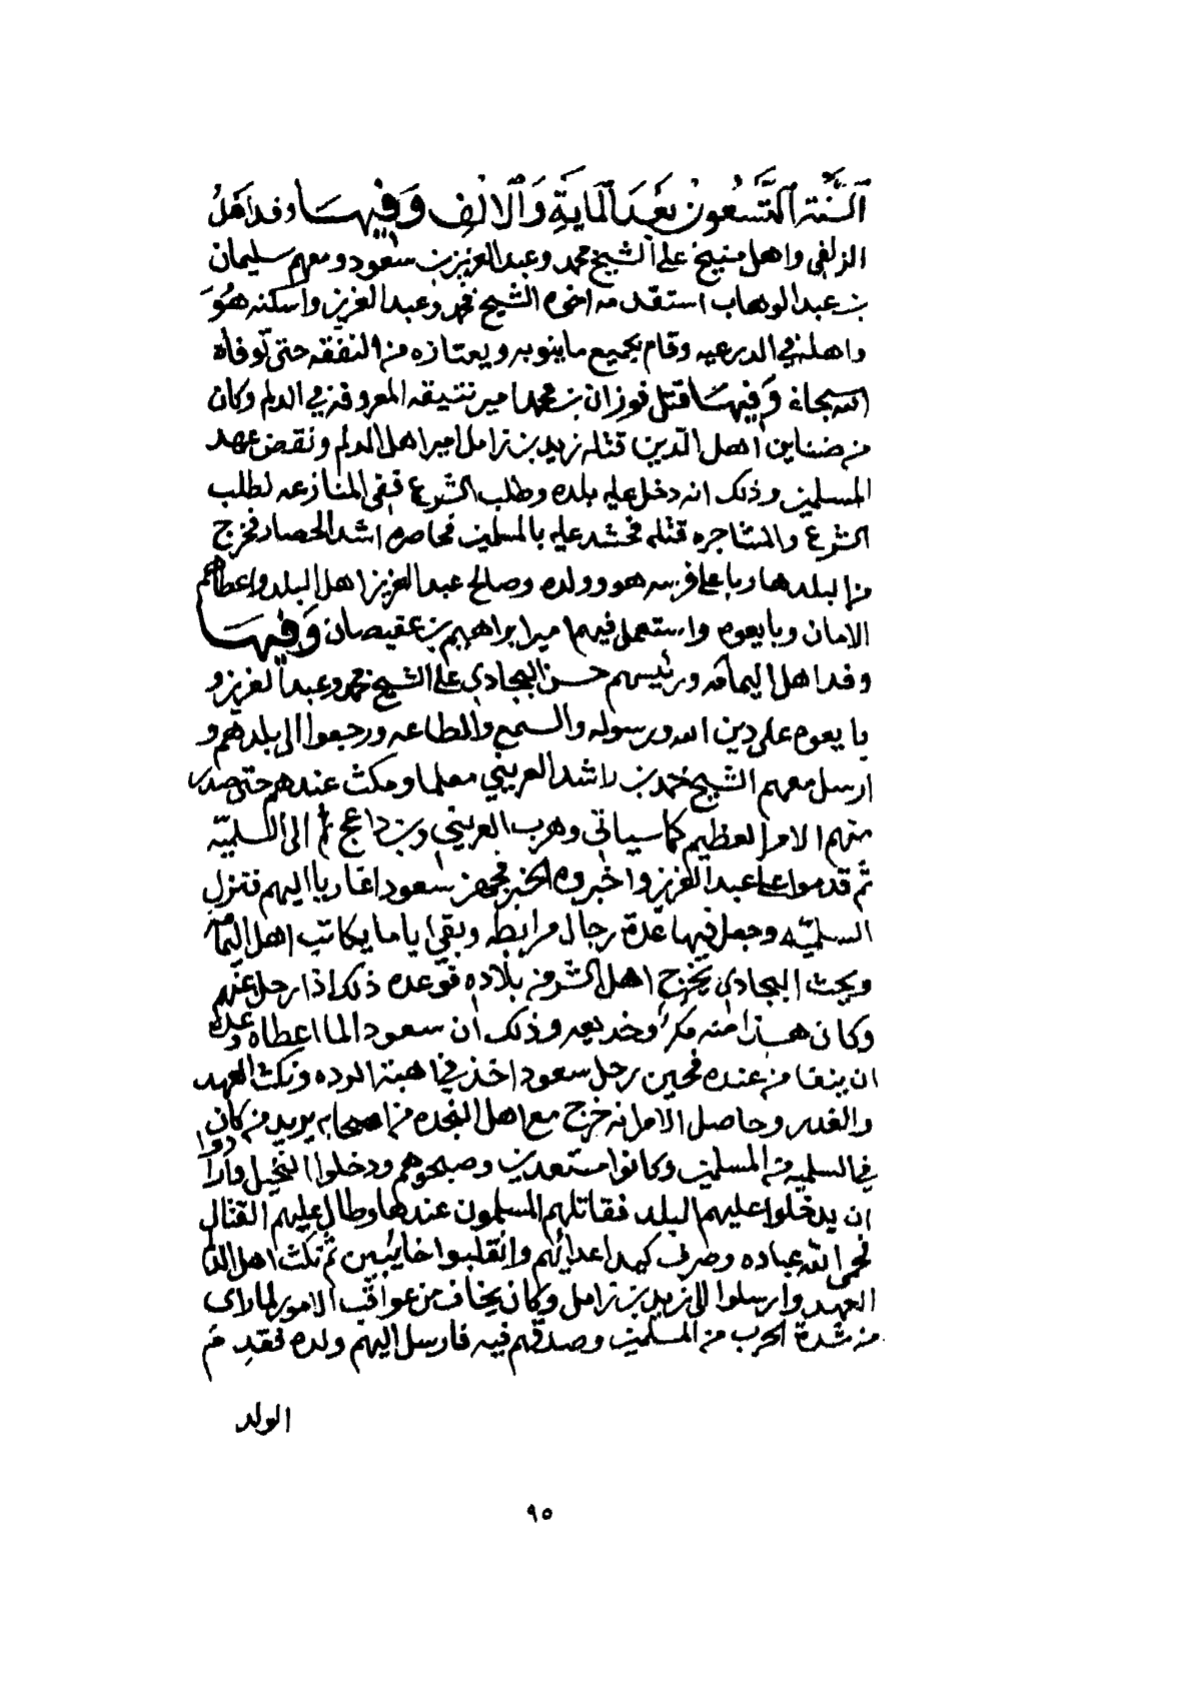 السنة التسعون بعد الماية والالف وفيها وفد اهل
الزلفي واهل منيخ على الشيخ محمد وعبدالعزيز بن سعود ومعهم سليمان
بن عبدالوهاب استقدمه اخوه الشيخ محمد وعبدالعزيز واسكنه هو
واهله في الدرعيه وقام بجميع ما ينوبه ويعتازه من النفقه حتى توفاه
الله سبحانه وفيها قتل فوزان بن محمد امير نتيقه المعروفه في الدلم وكان
من ضناين اهل الدين قتله زيد بن زامل امير اهل الدلم ونقض عهد
المسلمين وذلك انه دخل عليه بلده وطلب الشرع ففي المنازعه لطلب
الشرع والمشاجره قتله فحشد عليه بالمسلمين فحاصره اشد الحصار فخرج
من البلد هاربا على فرسه هو وولده وصالح عبدالعزيز اهل البلد واعطاهم
الامان وبايعوه واستعمل فيهم اميرا براهيم بن عقيصان وفيها
وفد اهل اليمامه ورئيسهم حسن البجادي على الشيخ محمد وعبدالعزيز و
بايعوه على دين الله ورسوله والسمع والطاعه ورجعوا الى بلدهم و
ارسل معهم الشيخ حمد بن راشد العريني معلما ومكث عندهم حتى صدر
منهم الامر العظيم كما سياتي وهرب العريني وبن داعج ثم الى السلميّه
ثم قدموا على عبدالعزيز واخبروه الخبر فجهز سعودا غازيا اليهم فنزل
السلميّه وجعل فيها عدة رجال مرابطه وبقي اياما يكاتب اهل اليمامه
ويحث البجادي يخرج اهل الشر من بلاده فوعده ذلك اذا رحل عنهم
وكان هذا منه مكرا وخديعه وذلك ان سعودا لما اعطاه وعده
ان ينفا من عنده فحين رحل سعود اخذ في اهبة الرده ونكث العهد
والغدر وحاصل الامر انه خرج مع اهل النجده من اصحابه يريد من كان
في السلميه من المسلمين وكانوا مستعدين وصبحوهم ودخلوا النخيل وارادوا
ان يدخلوا عليهم البلد فقاتلهم المسلمون عندها وطال عليهم القتال
فحمى الله عباده وصرف كيد اعدائهم وانقلبوا خائبين ثم نكث اهل الدلم
العهد وارسلوا الى زيد بن زامل وكان يخاف من عواقب الامور لما راى
من شدة الحرب من المسلمين وصدقهم فيه فارسل اليهم ولده فقدم
الولد
٩٥